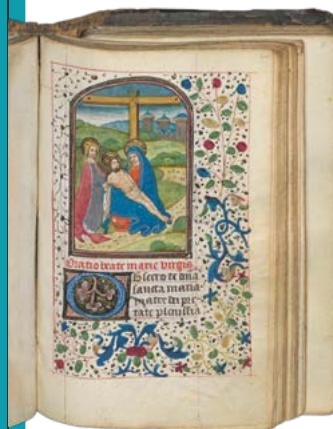 Oratio beate marie virgīs
bsecro te dn̄a
sancta maria
mater dei pie-
tate plenissīa